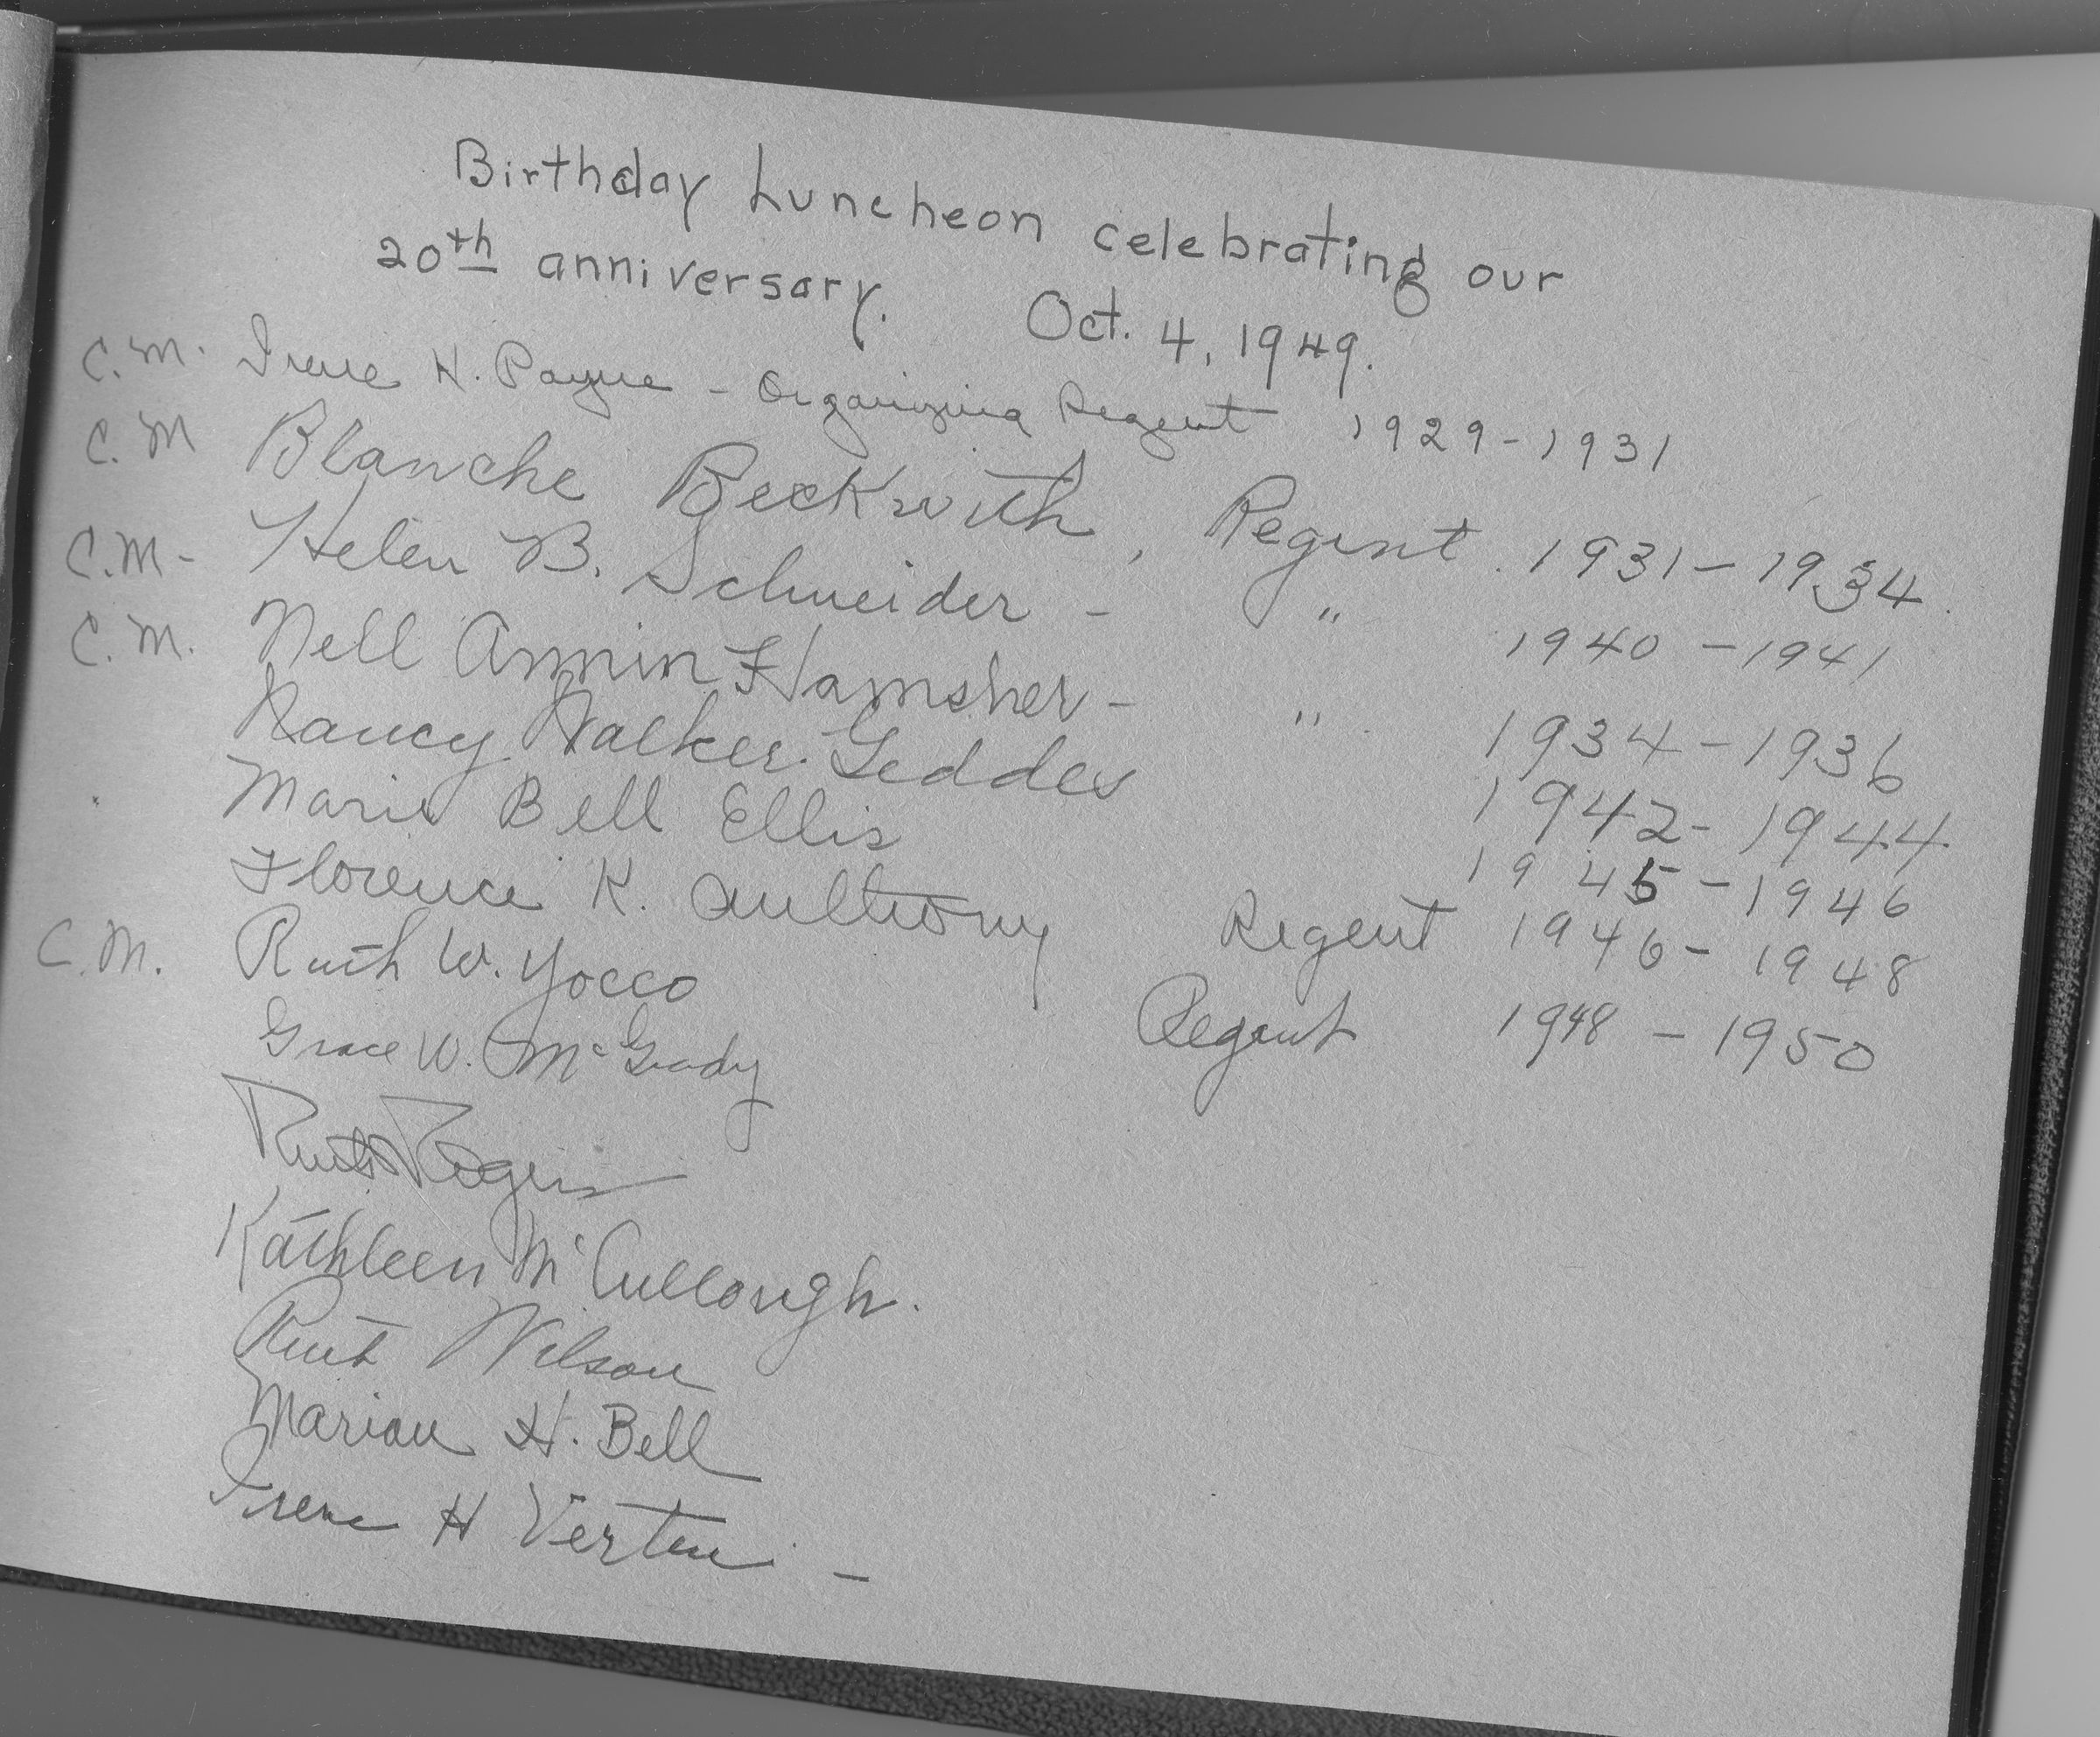 Birthday Luncheon celebrating our
20th anniversary. Oct. 4, 1949.
C.M. Irene H. Payne - Organizing Regent 1929-1931
C.M Blanche Beckwith, Regent 1931-1934
C.M- Helen B. Schneider - " 1940-1941
C.M. Nell Armin Hamsher - " 1934-1936
Nancy Walker Geddes 1942-1944
Marie Bell Ellis 1945-1946
Florence K. Anthony Regent 1946-1948
C.M. Ruth W. Yocco Regent 1948-1950
Grace W. McGrady
Ruth Rogers
Kathleen McCullough.
Ruth Wilson
Marion H. Bell
Irene H